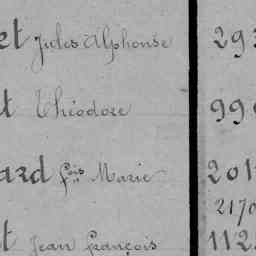 et Jules Alphonse 293
t Théodore 990
ard fçois Marie 2011
2170
t Jean françois 112